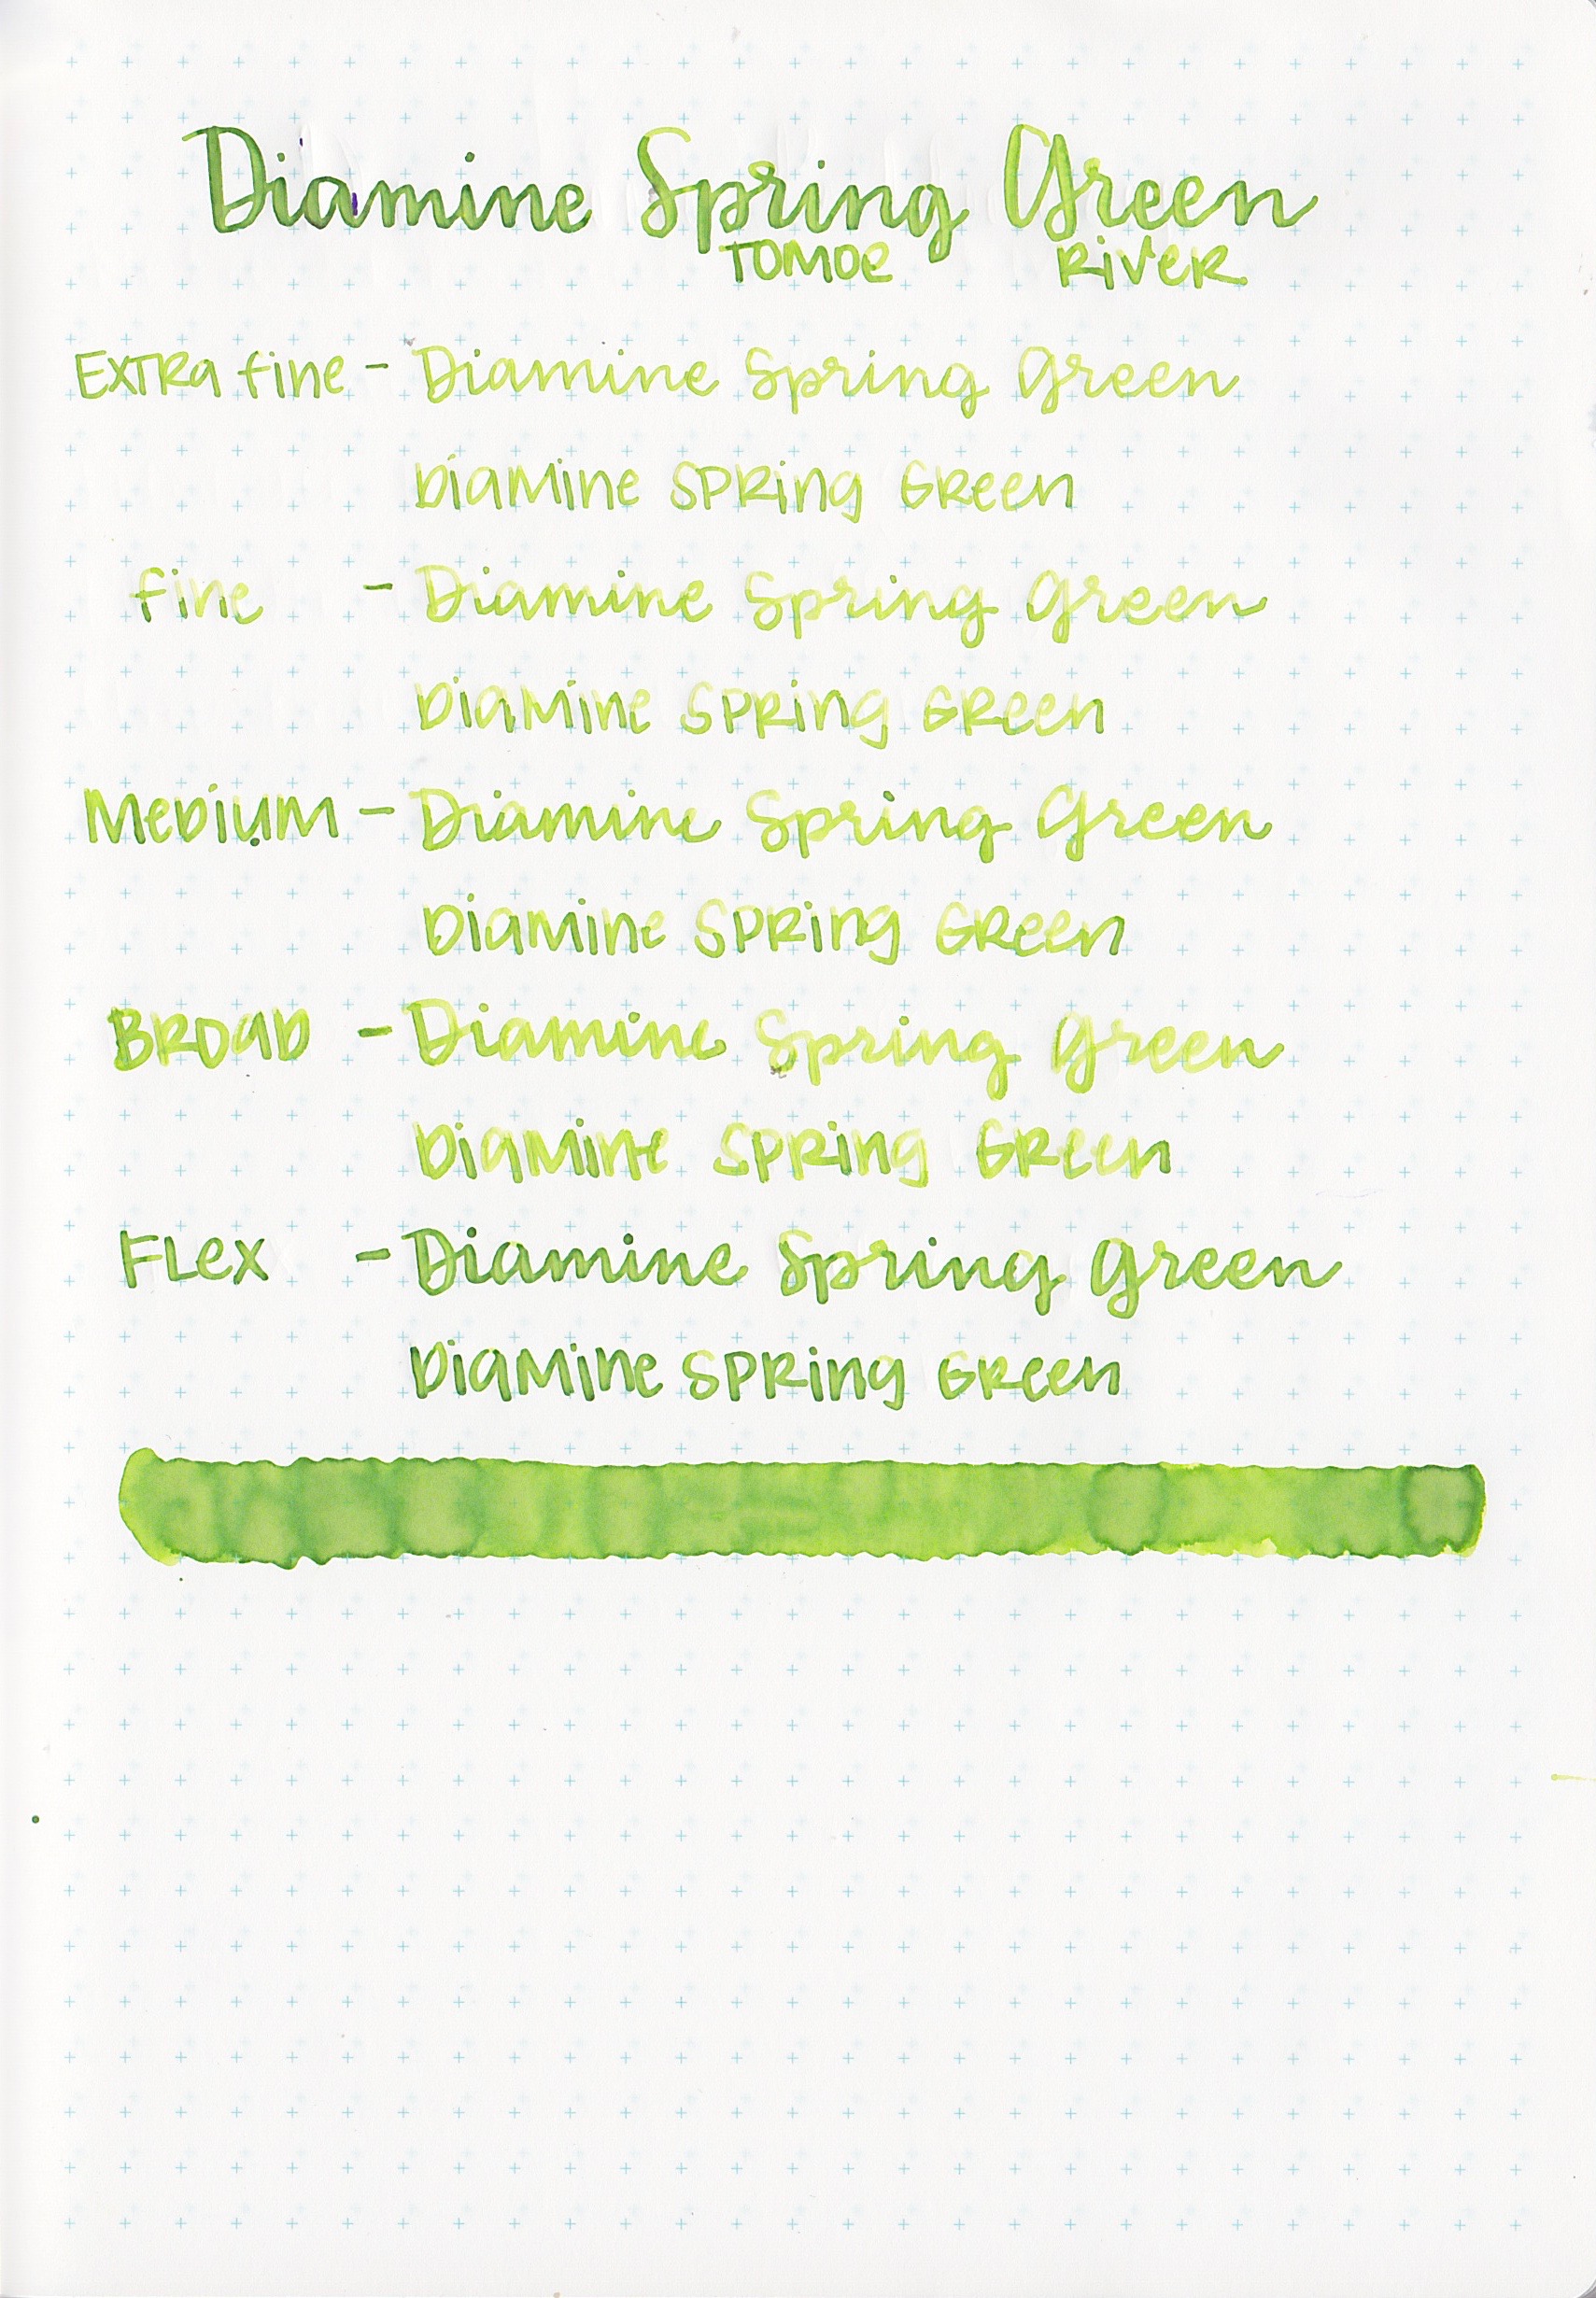 Diamine Spring Green
TOMOE RiVER
EXTRa fine - Diamine Spring Green
DiaMine SPRing GReen
fine - Diamine Spring Green
DiaMine SPRing GReen
MeDiUM - Diamine Spring Green
DiaMine SPRing GReen
BROaD - Diamine Spring Green
DiaMine SPRing GReen
FLeX - Diamine Spring Green
DiaMine SPRing GReen